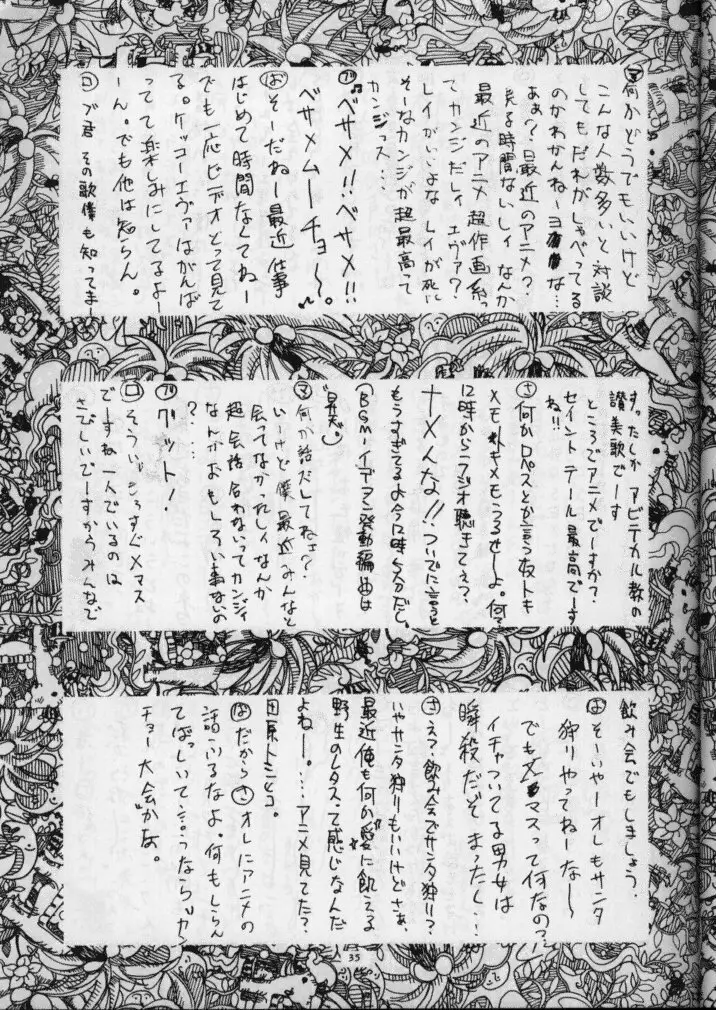 マ何かどうでもいいけど
こんな人数多いと対談
してもだれがしゃべってる
のかわかんねーヨな…
あぁ?最近のアニメ?
見る時間ないしィなんか
最近のアニメ超作画系
てカンジだしィエヴァ?
レイがいいよなレイが死に
そーなカンジが超最高て
カンジっス…
ブベサメ!!ベサメ!!
ベサメムーチョ〜。
はそーだねー最近仕事
はじめて時間なくてねー
でも一応ビデオとって見て
る。ケッコーエヴァはがんば
ってて楽しみにしてるよー
ーん。でも他は知らん。
ロブ君その歌僕も知ってまー
す。たしかアビテカル教の
讃美歌でーす
ところでアニメでーすか?
セイントテール最高でーす
ね!!
さ何かロペスとか言う夜トキ
メモ昼トキメモうるせーよ。何?
12時からラジオ聴きてぇ?
ナメんな!!ついでに言うと
もうすぎてるよ今12時57分だし、
(BGM・イデオン発動編曲は
「昇天」)
マ何か話だしてねェ?
いーけど僕最近みんなと
会ってなかったしィなんか
超会話合わないってカンジィ
なんかおもしろい事ないの
?……
ブグット!
ロそういえばもうすぐXマス
でーすね一人でいるのは
さびしいでーすからみんなで
飲み会でもしましょう.
はそーいやーオレもサンタ
狩りやってねーなー
でもXマスって何なの?
イチャついてる男女は
瞬殺だぞまったく…!
さえ?飲み会でサンタ狩り?
いやサンタ狩りもいいけどさぁ、
最近俺も何か愛に飢える
野生のレタスって感じなんだ
よねー。…アニメ見てた?
田原トシヒコ。
はだからさオレにアニメの
話ふるなよ。何もしらん
てばっしいて言うならリカ
チョー大会かな。
35